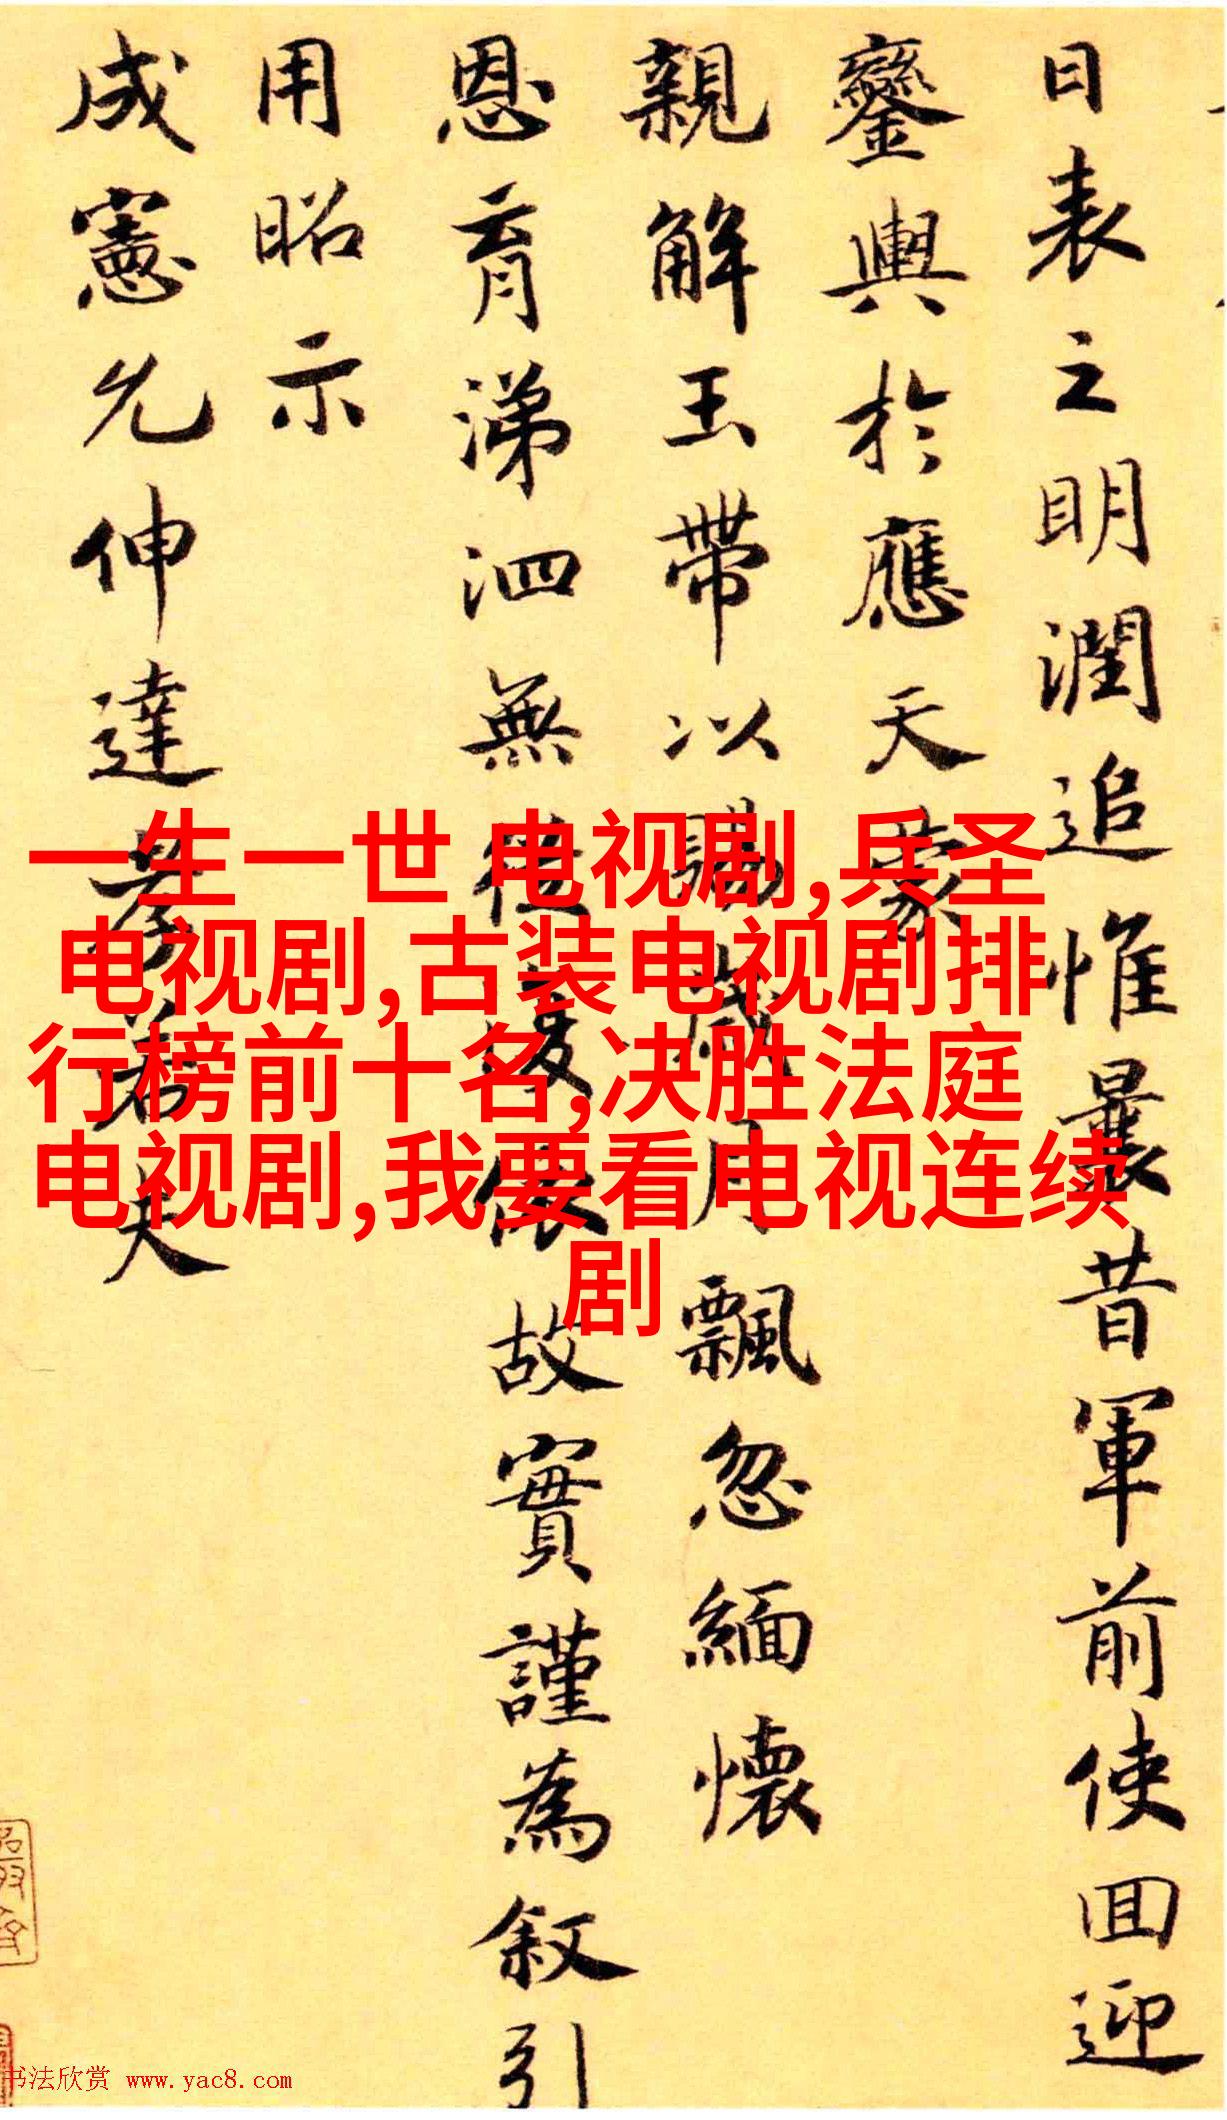 日表之明潤追惟曩昔軍前使回迎
鑾輿於應天蒙
親解玉帶以賜歲月飄忽緬懷
恩育涕泗無從後依故實謹為叙引
用昭示
成憲允伸達孝若夫
一生一世 电视剧,兵圣
电视剧,古装电视剧排
行榜前十名,决胜法庭
电视剧,我要看电视连续
剧
书法欣赏 www.yac8.com